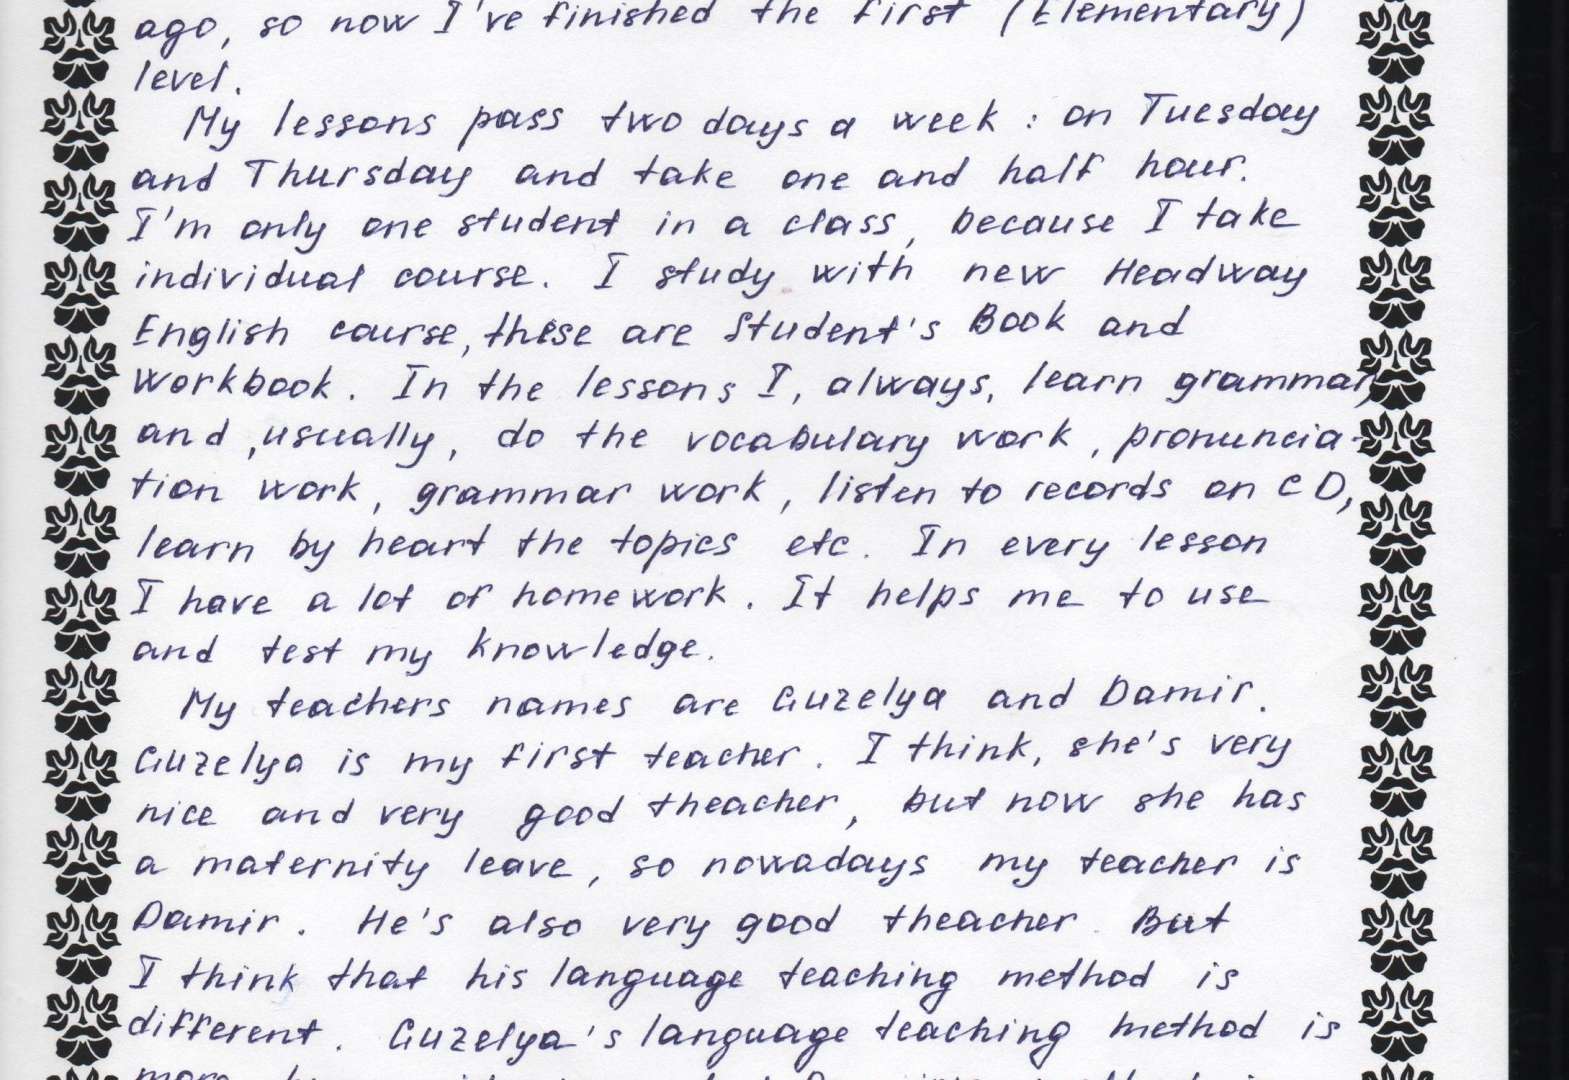 ago, so now I've finished the first (Elementary)
level.
My lessons pass two days a week : on Tuesday
and Thursday and take one and half hour.
I'm only one student in a class, because I take
individual course. I study with new Headway
English course, these are Student's Book and
Workbook. In the lessons I, always, learn grammar,
and ,usually, do the vocabulary work, pronuncia-
tion work, grammar work, listen to records on CD,
learn by heart the topics etc. In every lesson
I have a lot of homework. It helps me to use
and test my knowledge.
My teachers names are Guzelya and Damir.
Guzelya is my first teacher. I think, she's very
nice and very good theacher, but now she has
a maternity leave, so nowadays my teacher is
Damir. He's also very good theacher. But
I think that his language teaching method is
different. Guzelya's language teaching method is
more